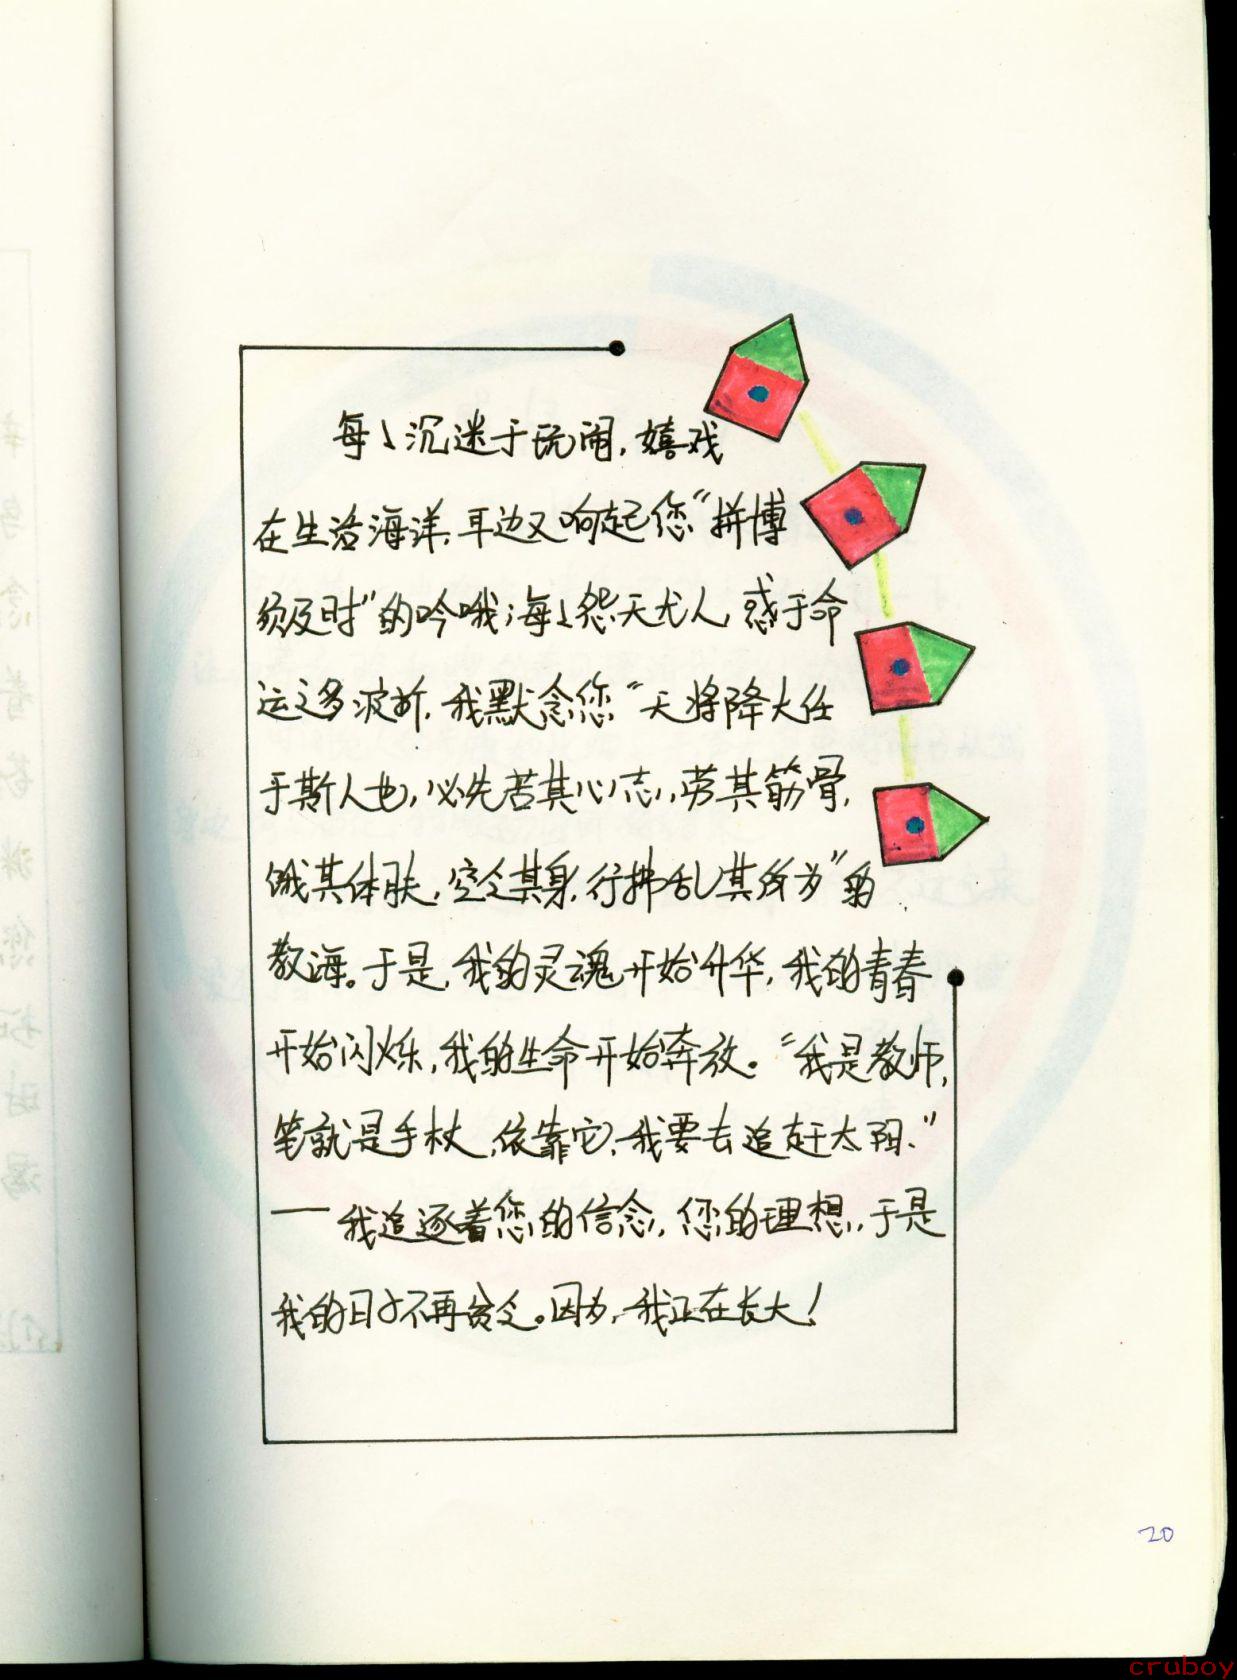 每每沉迷于玩闹，嬉戏
在生活海洋，耳边又响起您“拼博
须及时”的吟哦；每每怨天尤人，惑于命
运之多波折，我默念您“天将降大任
于斯人也，必先苦其心志，劳其筋骨，
饿其体肤，空乏其身，行拂乱其所为”的
教诲。于是，我的灵魂开始升华，我的青春
开始闪烁，我的生命开始奔放。“我是教师，
笔就是手杖，依靠它，我要去追赶太阳。”
——我追逐着您的信念，您的理想，于是
我的日子不再贫乏。因为，我正在长大！
20
cruboy